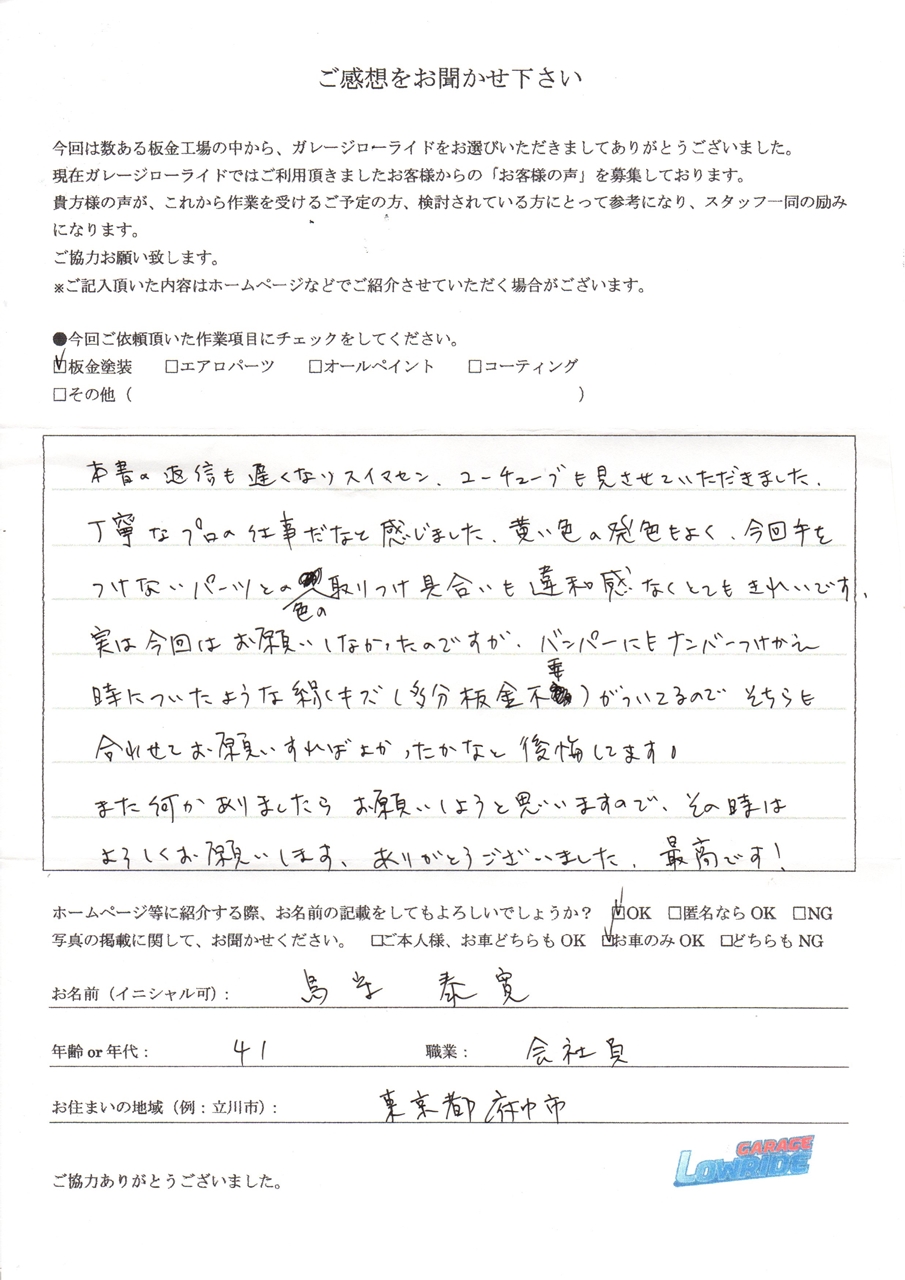 ご感想をお聞かせ下さい
今回は数ある板金工場の中から、ガレージローライドをお選びいただきましてありがとうございました。
現在ガレージローライドではご利用頂きましたお客様からの「お客様の声」を募集しております。
貴方様の声が、これから作業を受けるご予定の方、検討されている方にとって参考になり、スタッフ一同の励み
になります。
ご協力お願い致します。
※ご記入頂いた内容はホームページなどでご紹介させていただく場合がございます。
●今回ご依頼頂いた作業項目にチェックをしてください。
☑板金塗装 □エアロパーツ □オールペイント □コーティング
□その他（ ）
本書の返信も遅くなりスイマセン、ユーチューブも見させていただきました、
丁寧なプロの仕事だなと感じました、黄い色の発色もよく、今回手を
つけないパーツとの色の取りつけ具合いも違和感なくとてもきれいです、
実は今回はお願いしなかったのですが、バンパーにもナンバーつけかえ
時についたような線キズ（多分板金不要）がついてるのでそちらも
合わせてお願いすればよかったかなと後悔してます！
また何かありましたらお願いしようと思いますので、その時は
よろしくお願いします、ありがとうございました、最高です！
ホームページ等に紹介する際、お名前の記載をしてもよろしいでしょうか？ ☑OK □匿名なら OK □NG
写真の掲載に関して、お聞かせください。 □ご本人様、お車どちらも OK ☑お車のみ OK □どちらも NG
お名前（イニシャル可）： 泰寛
年齢 or 年代： 41 職業： 会社員
お住まいの地域（例：立川市）： 東京都府中市
GARAGE
LOWRIDE
ご協力ありがとうございました。